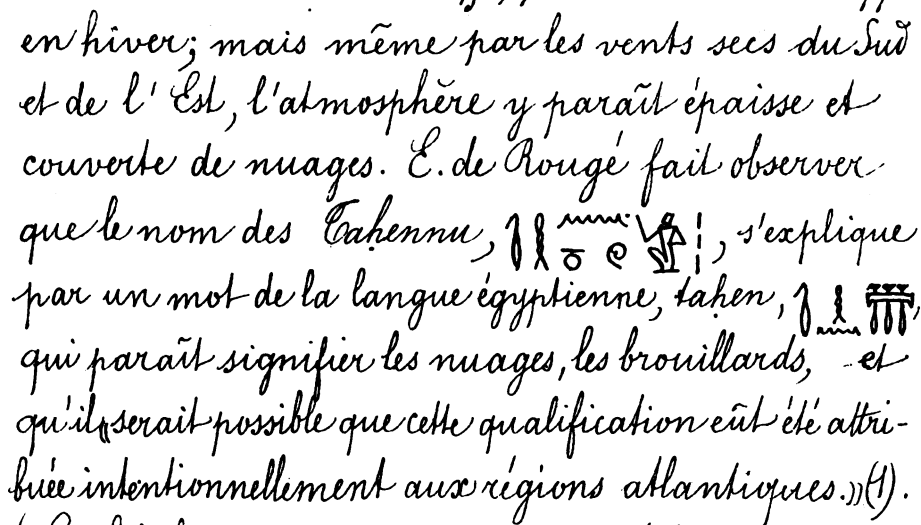 en hiver; mais même par les vents secs du Sud
et de l'Est, l'atmosphère y paraît épaisse et
couverte de nuages. E. de Rougé fait observer
que le nom des Taḥennu, , s'explique
par un mot de la langue égyptienne, taḥen, ,
qui paraît signifier les nuages, les brouillards, et
qu'il «serait possible que cette qualification eût été attri-
buée intentionnellement aux régions atlantiques.»(1).